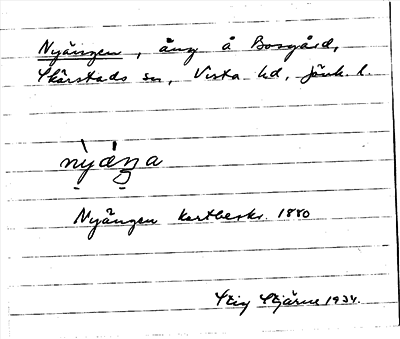 Nyängen, äng å Bosgård,
Skärstads sn, Vista hd, Jönk. l.
nyäŋa
Nyängen kartbeskr. 1880
Stig Stjärne 1934.